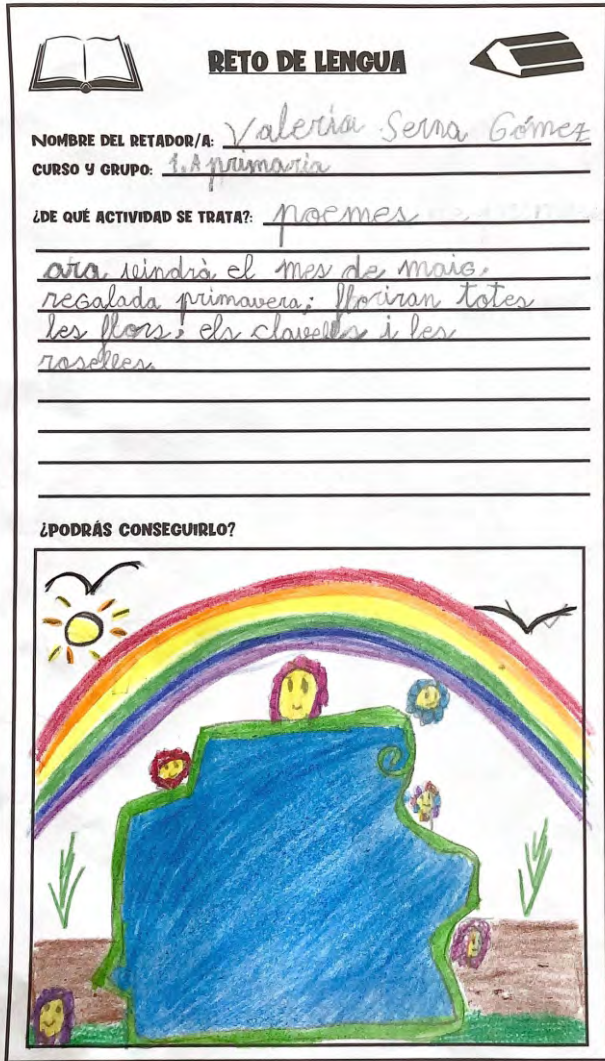 RETO DE LENGUA
NOMBRE DEL RETADOR/A: Valeria Serna Gómez
CURSO Y GRUPO: 1.A primaria
¿DE QUÉ ACTIVIDAD SE TRATA?: poemes
ara vindrà el mes de maig,
regalada primavera; floriran totes
les flors; els clavells i les
roselles.
¿PODRÁS CONSEGUIRLO?